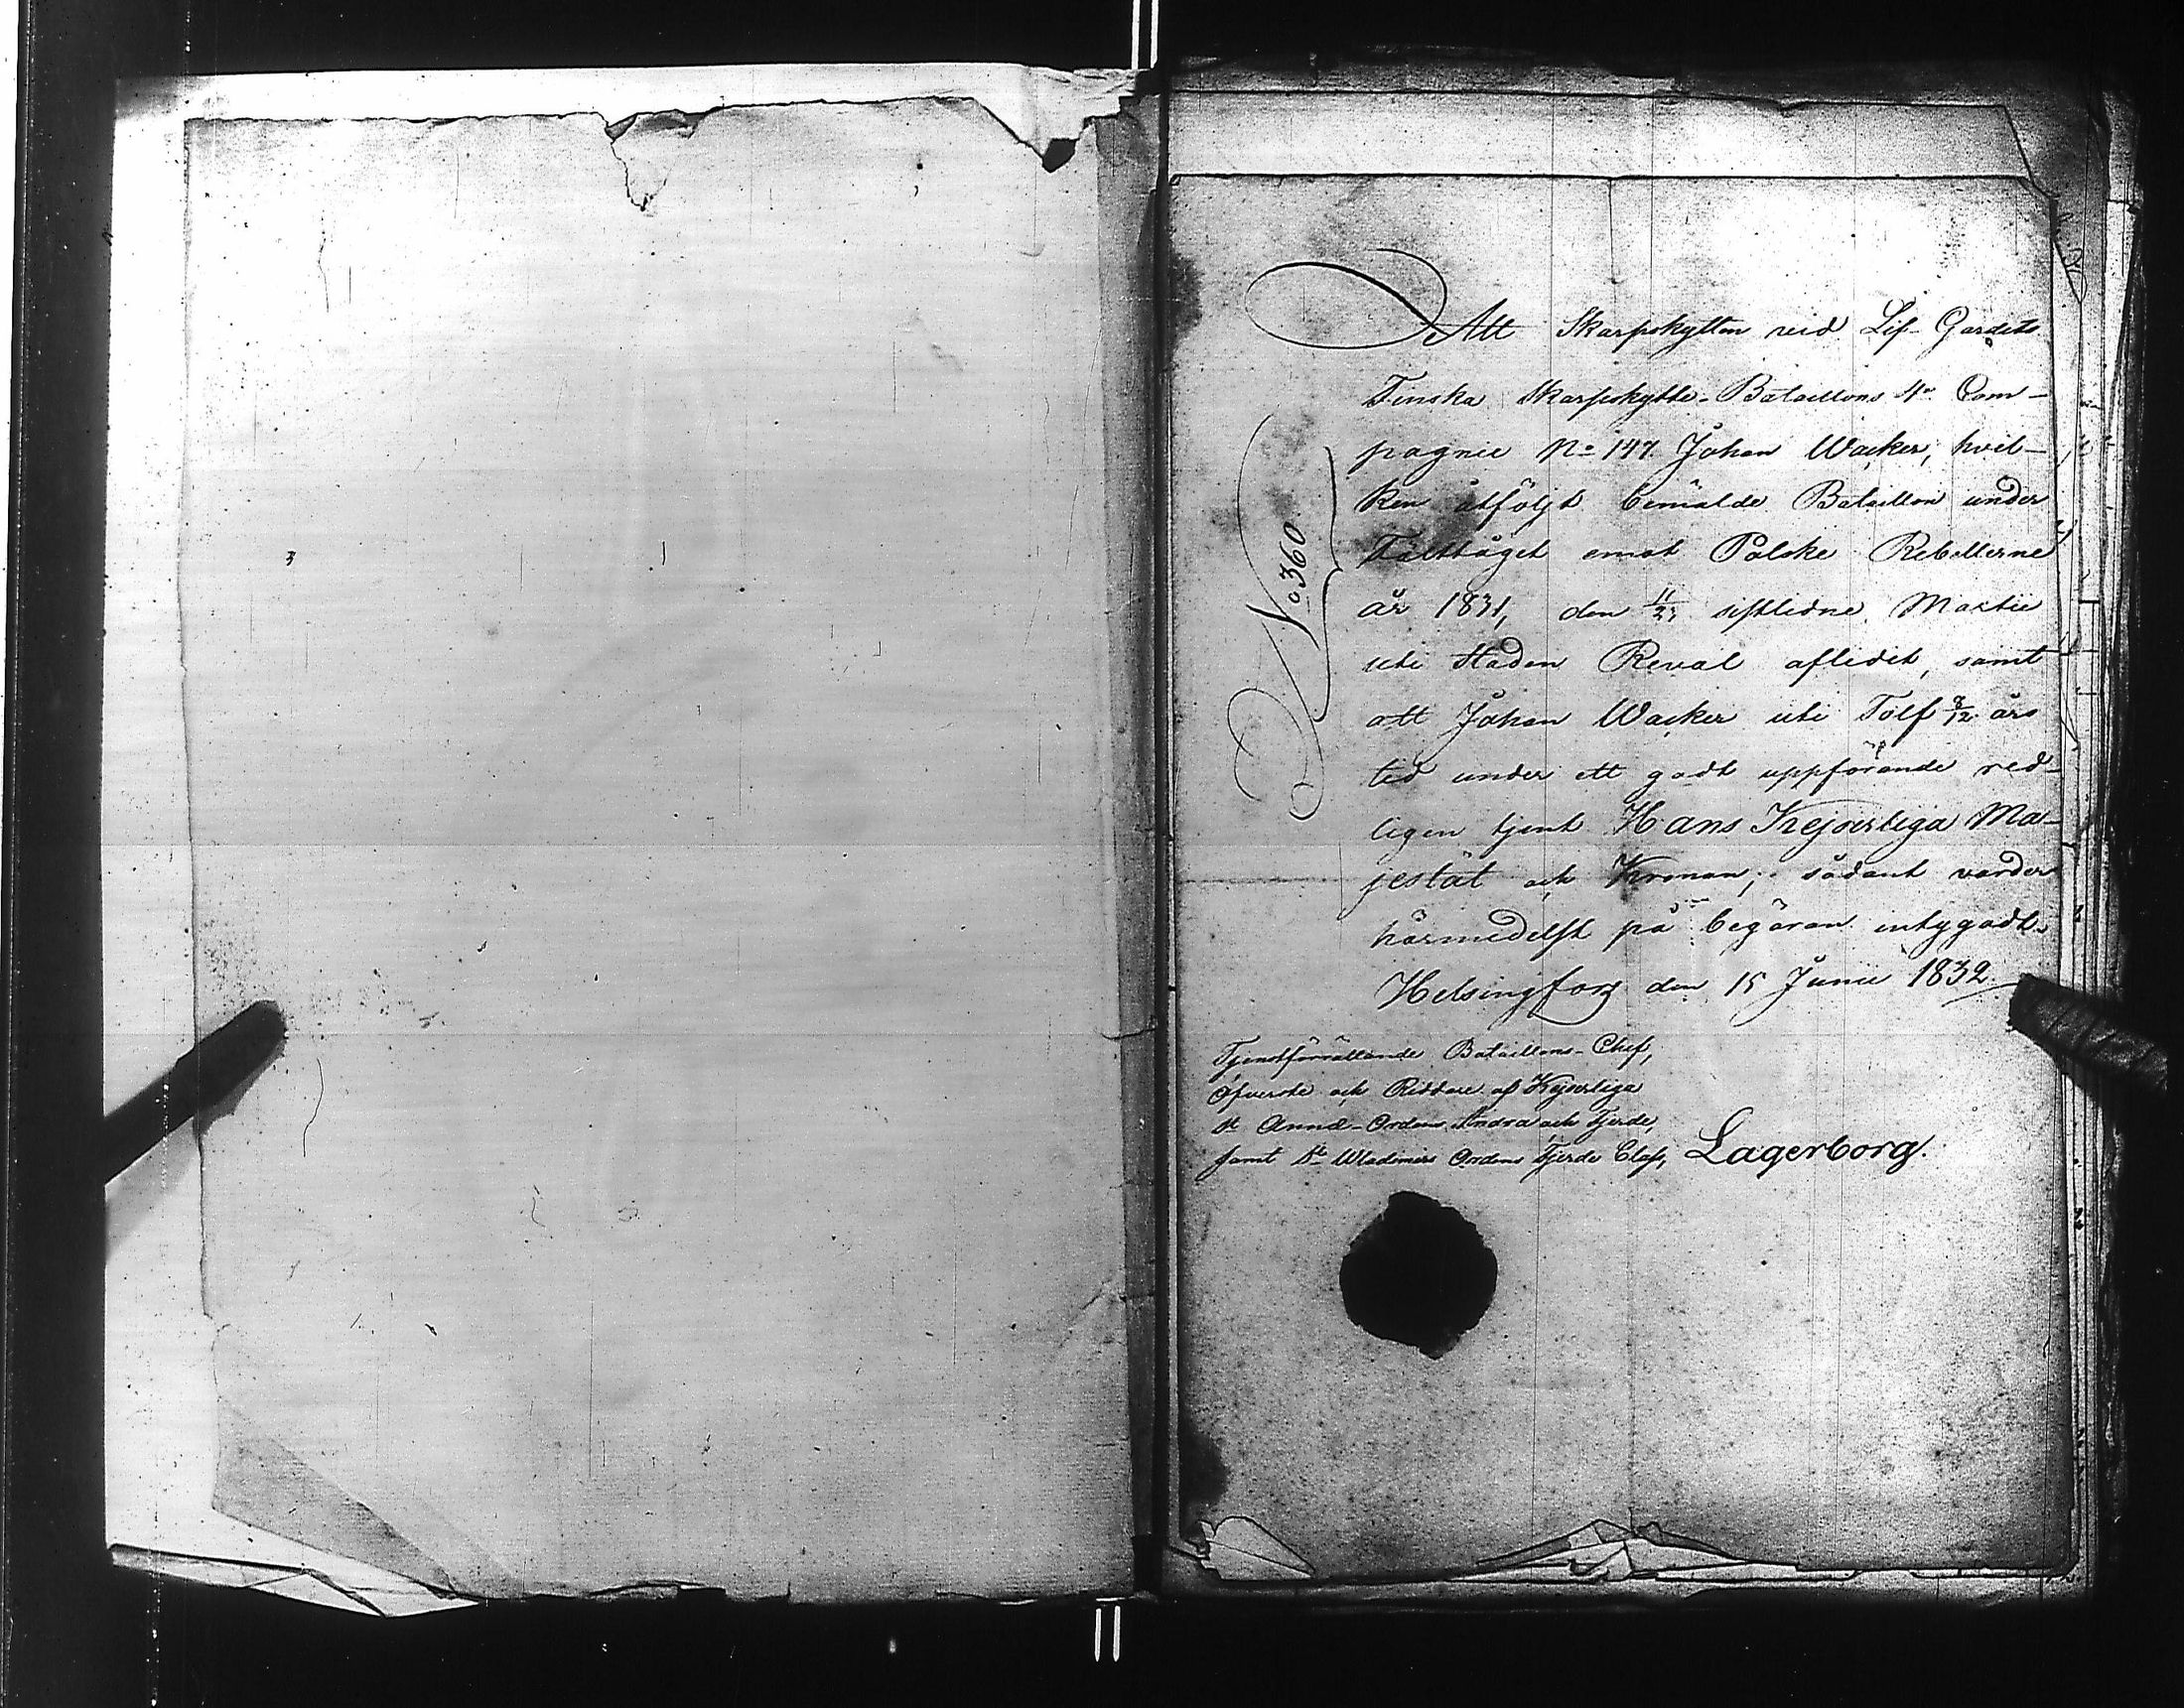 Att Skarpskytten vid Lif-Gardets
Finska Skarpskytte-Bataillons 4e Com-
pagnie No 147. Johan Wacker, hvil-
ken åtföljt bemälde Bataillon under
Fälttåget emot Polske Rebellerne
år 1831, den 11/23 sistlidne Martii
uti Staden Reval aflidit, samt
att Johan Wacker uti Tolf 8/12 års
tid under ett godt uppförande red-
ligen tjent Hans Kejserliga Ma-
jestät och Kronan; sådant varder
härmedelst på begäran intygadt.
Helsingfors den 15 Junii 1832
No 360.
Tjenstförrättande Bataillons-Chef,
Öfverste och Riddare af Kejserliga
St Annæ-Ordens Andra och Fjerde,
samt St Wladimirs Ordens Fjerde Class, Lagerborg.